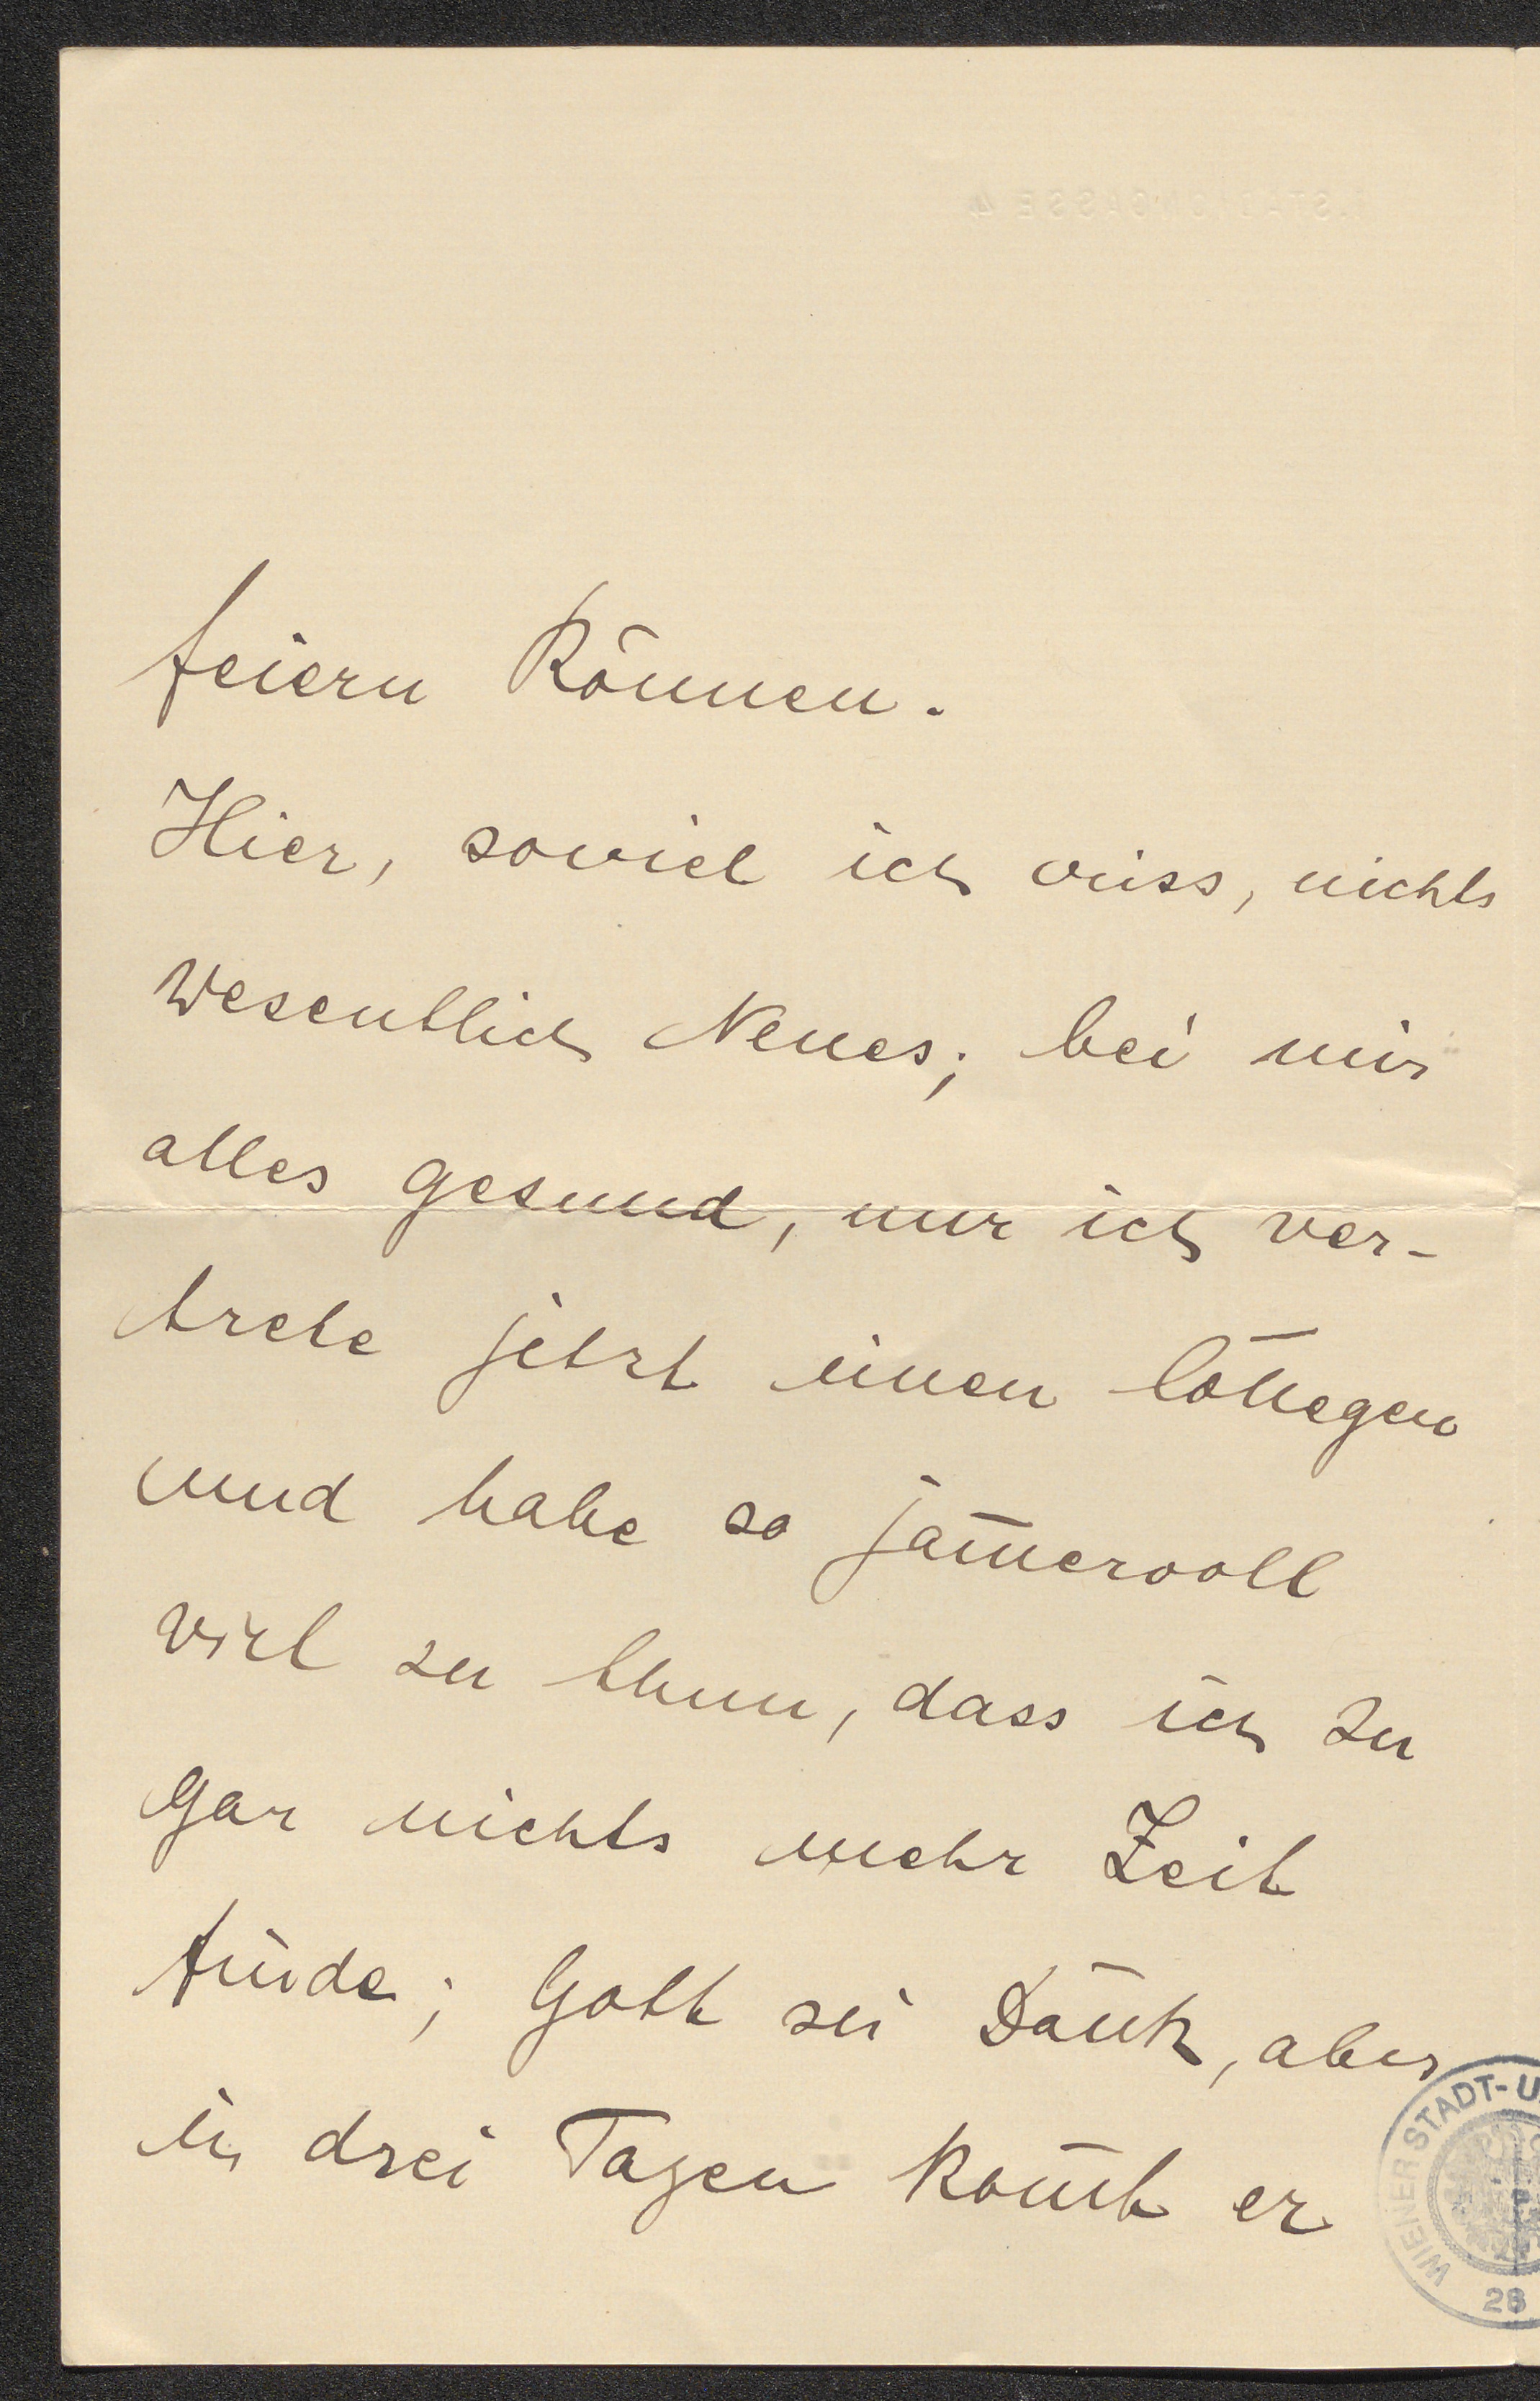 feiern können.
Hier, soviel ich weiss, nichts
wesentlich Neues; bei mir
alles gesund, nur ich ver-
trete jetzt einen Collegen
und habe so jam̅ervoll
viel zu thun, dass ich zu
gar nichts mehr Zeit
finde; Gott sei Dank, aber
in drei Tagen kom̅t er
WIENER STADT-U
28